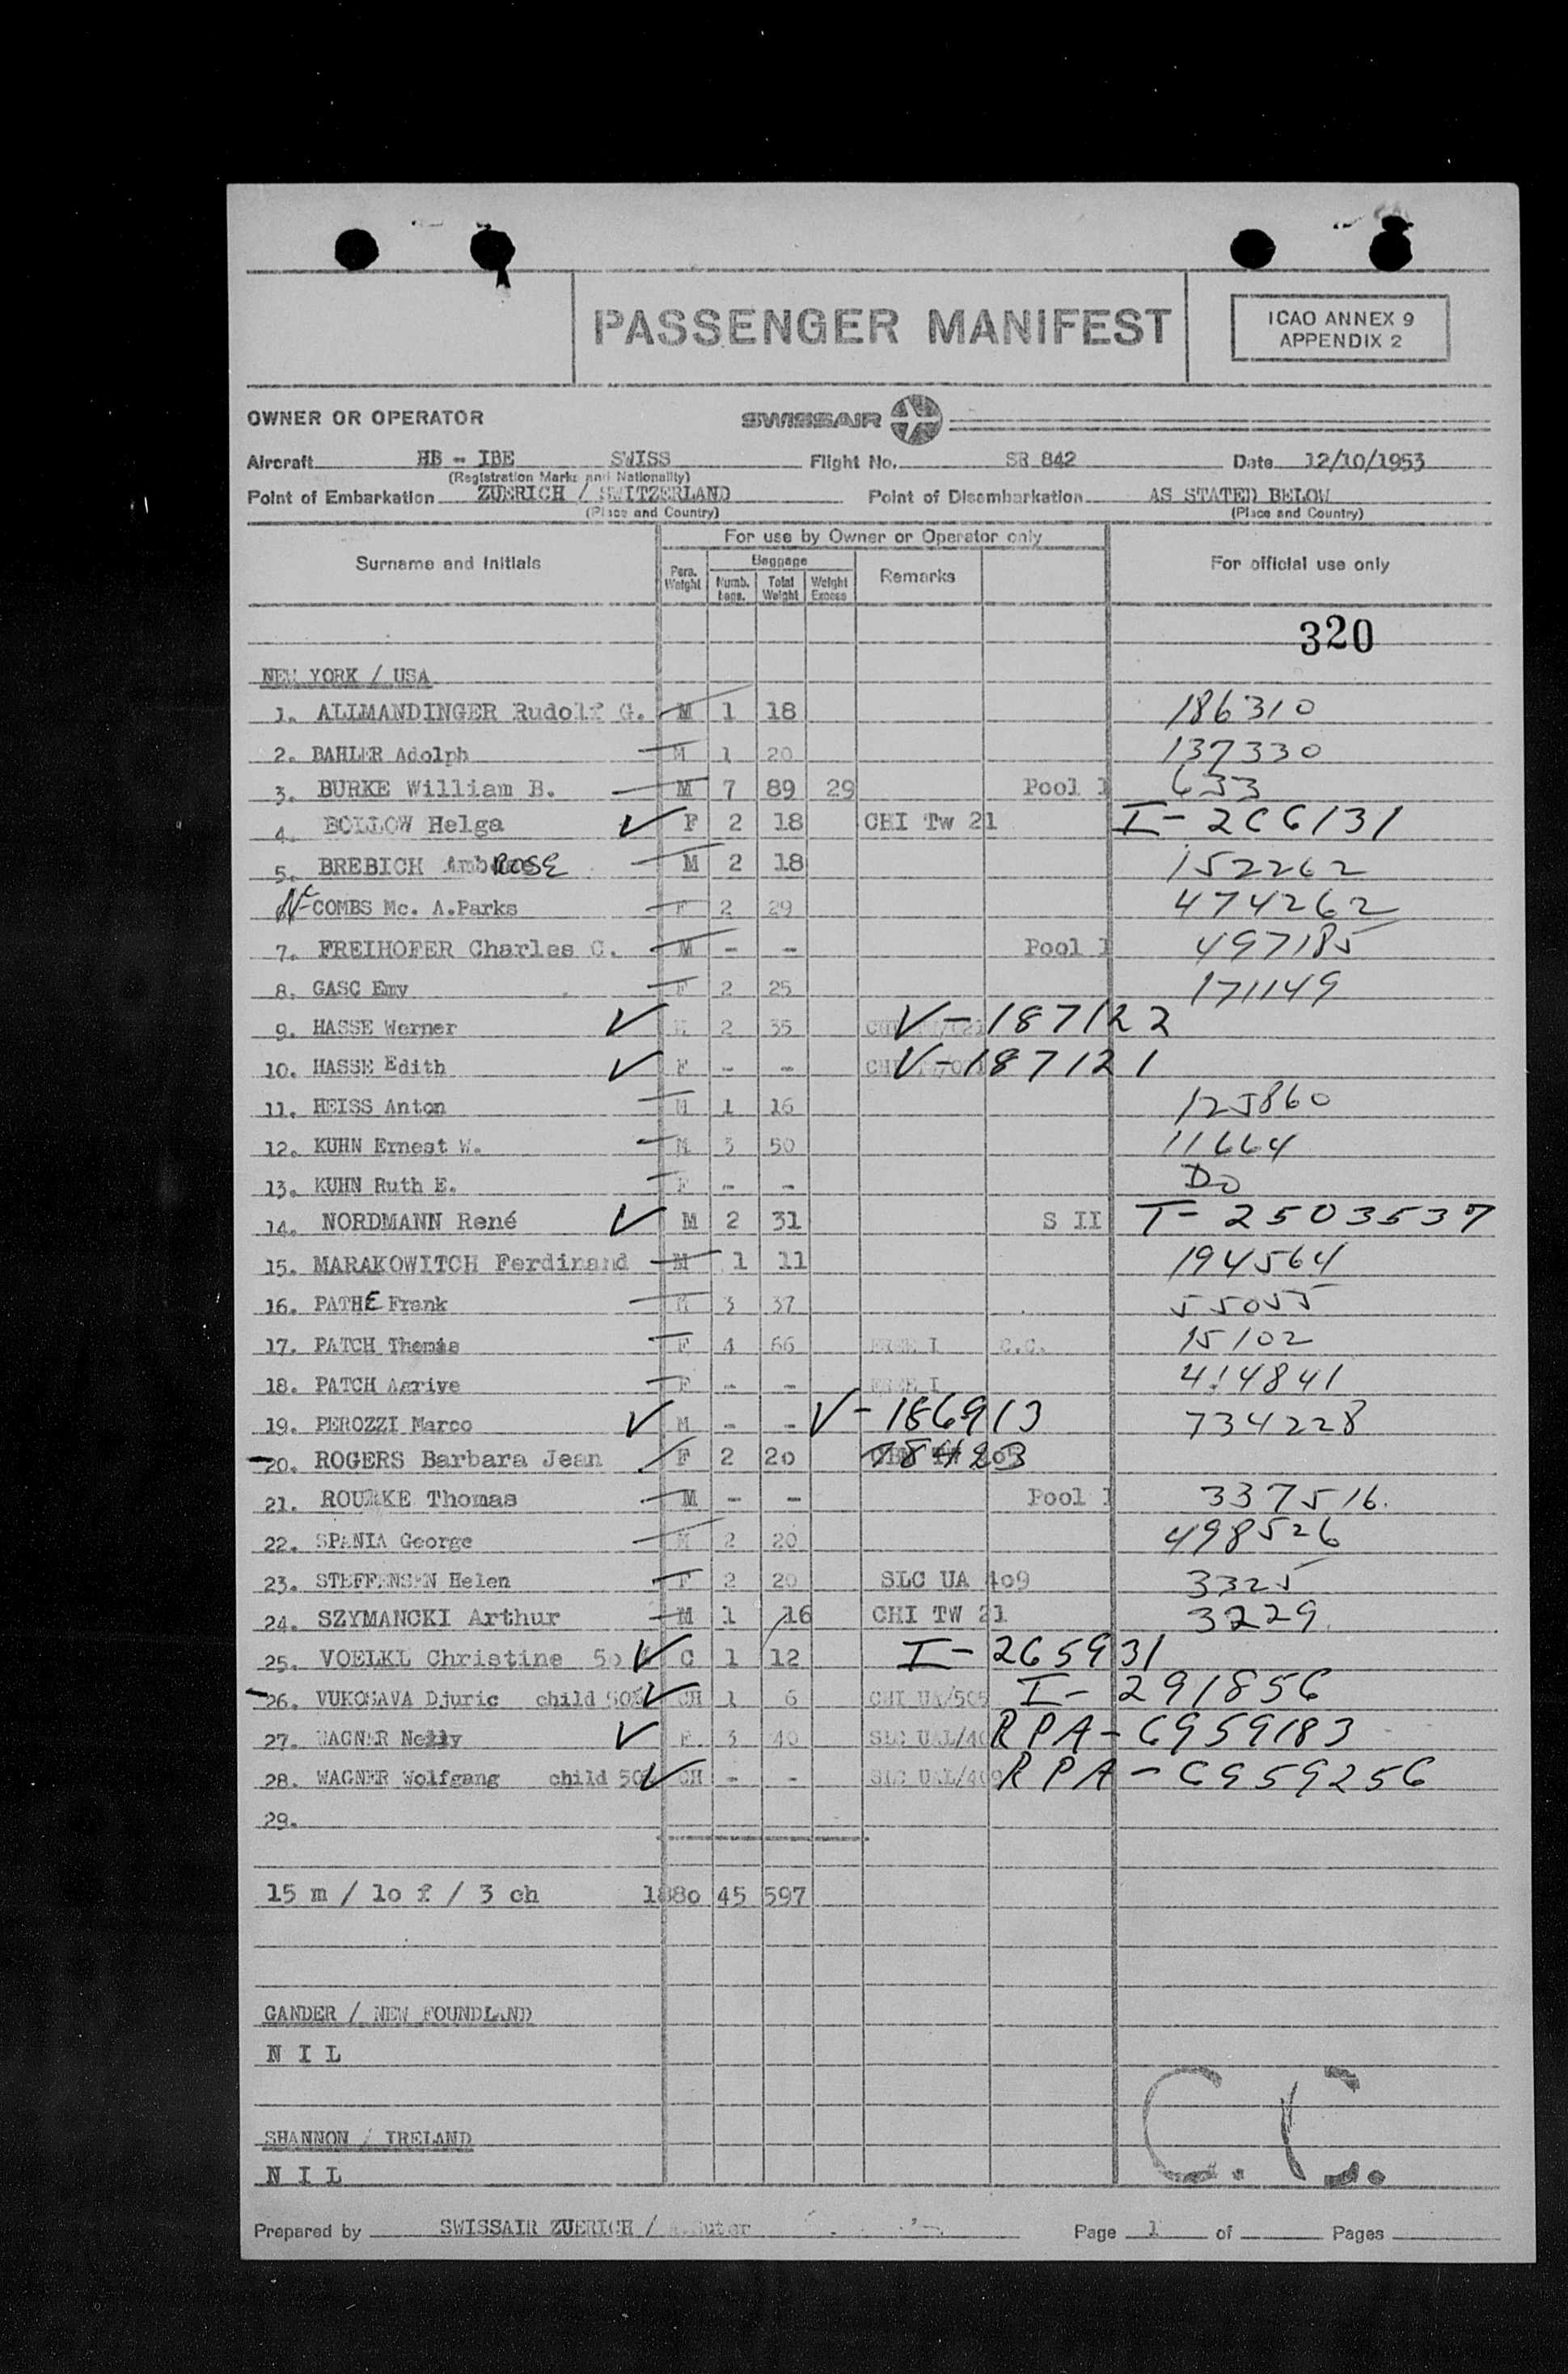 PASSENGER MANIFEST
ICAO ANNEX 9
APPENDIX 2
OWNER OR OPERATOR SWISSAIR
Aircraft HB - IBE SWISS Flight No. SR 842 Date 12/10/1953
(Registration Marks and Nationality)
Point of Embarkation ZUERICH / SWITZERLAND Point of Disembarkation AS STATED BELOW
(Place and Country) (Place and Country)
For use by Owner or Operator only
Surname and Initials Pers. Weight Baggage Numb. Total Weight Weight Excess Remarks For official use only
320
NEW YORK / USA
1. ALLMANDINGER Rudolf G. M 1 18 186310
2. BAHLER Adolph M 1 20 137330
3. BURKE William B. M 7 89 29 Pool 1 653
4. BOLLOW Helga F 2 18 CHI Tw 21 I-266131
5. BREBICH AmbROSE M 2 18 152262
COMBS Mc. A.Parks F 2 29 474262
7. FREIHOFER Charles C. M - - Pool 1 497185
8. GASC Emy F 2 25 171149
9. HASSE Werner M 2 35 V-187122
10. HASSE Edith F - - V-187121
11. HEISS Anton M 1 16 125860
12. KUHN Ernest W. M 3 50 11664
13. KUHN Ruth E. F - - Do
14. NORDMANN René M 2 31 S II T-2503537
15. MARAKOWITCH Ferdinand M 1 11 194564
16. PATHE Frank M 3 37 55055
17. PATCH Themis F 4 66 FREE I C.C. 15102
18. PATCH Agrive F - - FREE I 414841
19. PEROZZI Marco M - - V-186913 734228
20. ROGERS Barbara Jean F 2 20 78423
21. ROURKE Thomas M - - Pool 1 337516.
22. SPANIA George M 2 20 498526
23. STEFFENSEN Helen F 2 20 SLC UA 409 3325
24. SZYMANCKI Arthur M 1 16 CHI TW 21 3229
25. VOELKL Christine 50 C 1 12 I-265931
26. VUKOSAVA Djuric child 50% CH 1 6 CHI UA/505 I-291856
27. WAGNER Nelly F 3 40 SLC UAL/40 RPA-6959183
28. WAGNER Wolfgang child 50% CH - - SLC UAL/409 RPA-6959256
29.
15 m / 10 f / 3 ch 1880 45 597
GANDER / NEW FOUNDLAND
N I L
SHANNON / IRELAND
N I L
C. C.
Prepared by SWISSAIR ZUERICH / Suter Page 1 of Pages